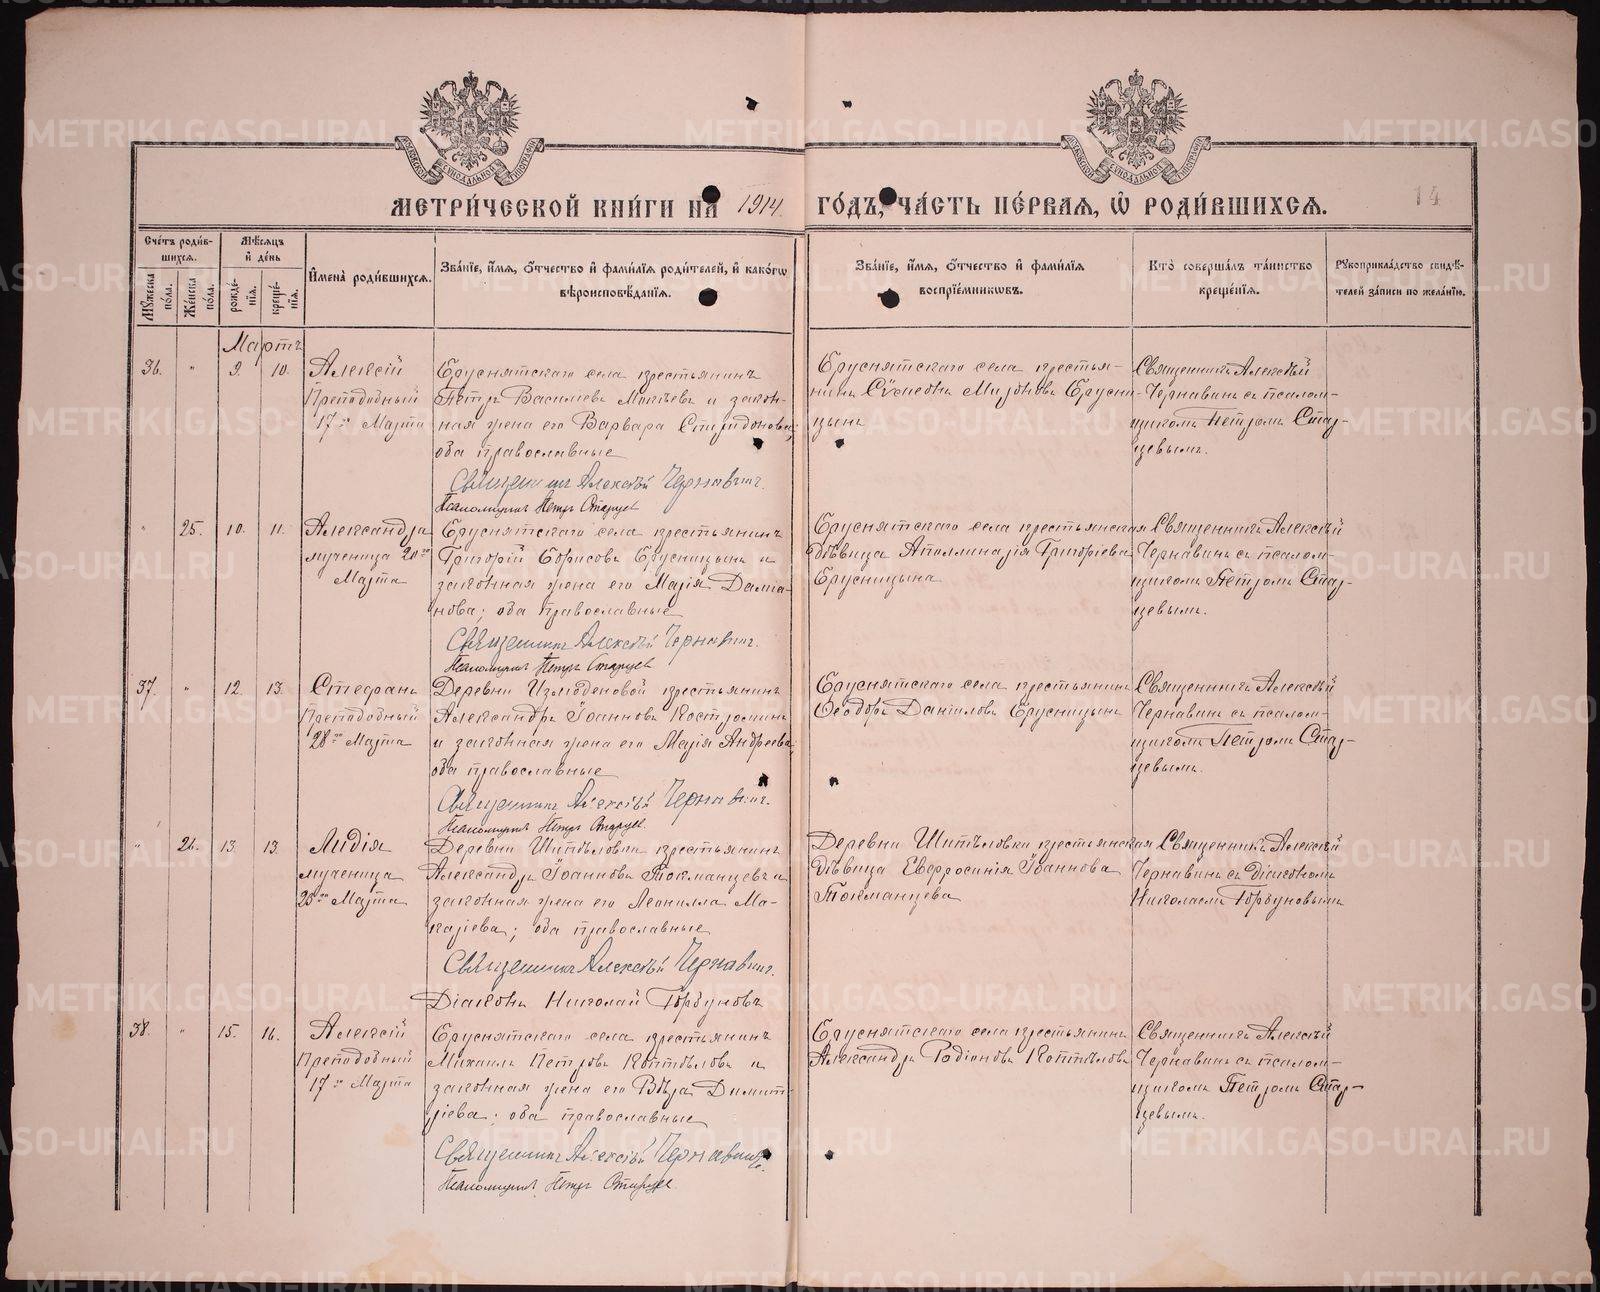 МЕТРИ́ЧЕСКОЙ КНИ́ГИ НА 1914. ГО́ДЪ, ЧА́СТЬ ПЕ́РВАЯ, Ѡ РОДИ́ВШИХСЯ.
14
Сче́тъ роди́вшихся.
Му́жеска по́ла.
Же́нска по́ла.
Мѣ́сяцъ и де́нь
рожде́нїя.
креще́нїя.
Имена̀ роди́вшихся.
Зва́нїе, и́мя, о́тчество и фами́лїя роди́телей, и како́гѡ вѣроисповѣ́данїя.
Зва́нїе, и́мя, о́тчество и фами́лїя воспрїе́мникѡвъ.
Кто̀ соверша́лъ та́инство креще́нїя.
Рꙋкоприкла́дство свидѣ́телей за́писи по жела́нїю.
Мартъ
36. " 9. 10.
Алексій
Преподобный
17го Марта
Бруснятскаго села крестьянинъ
Петръ Василіевъ Мокѣевъ и закон-
ная жена его Варвара Спиридонова,
оба православные
Священникъ Алексѣй Чернавинъ.
Псаломщикъ Петръ Старцев
Бруснятскаго села крестья-
нинъ Сѵмеонъ Мироновъ Брусни-
цынъ
Священникъ Алексѣй
Чернавинъ съ псалом-
щикомъ Петромъ Стар-
цевымъ.
" 25. 10. 11.
Александра
мученица 20го
Марта
Бруснятскаго села крестьянинъ
Григорій Борисовъ Брусницынъ и
законная жена его Марія Даміа-
нова; оба православные
Священникъ Алексѣй Чернавинъ.
Псаломщикъ Петръ Старцев
Бруснятскаго села крестьянская
дѣвица Аполлинарія Григоріева
Брусницына
Священникъ Алексѣй
Чернавинъ съ псалом-
щикомъ Петромъ Стар-
цевымъ.
37. " 12. 13.
Стефанъ
Преподобный
28го Марта
Деревни Измоденовой крестьянинъ
Александръ Іоанновъ Костроминъ
и законная жена его Марія Андреева
оба православные
Священникъ Алексѣй Чернавинъ.
Псаломщикъ Петръ Старцев.
Бруснятскаго села крестьянинъ
Ѳеодоръ Даніиловъ Брусницынъ
Священникъ Алексѣй
Чернавинъ съ псалом-
щикомъ Петромъ Стар-
цевымъ.
" 26. 13. 13.
Лидія
мученица
23го Марта
Деревни Шипѣловки крестьянинъ
Александръ Іоанновъ Токманцевъ и
законная жена его Леонилла Ма-
каріева; оба православные
Священникъ Алексѣй Чернавинъ.
Діаконъ Николай Горбуновъ
Деревни Шипѣловки крестьянская
дѣвица Евфросинія Іоаннова
Токманцева
Священникъ Алексѣй
Чернавинъ съ Діакономъ
Николаемъ Горбуновымъ
38. " 15. 16.
Алексій
Преподобный
17го Марта
Бруснятскаго села крестьянинъ
Михаилъ Петровъ Коптѣловъ и
законная жена его Вѣра Димит-
ріева; оба православные
Священникъ Алексѣй Чернавинъ.
Псаломщикъ Петръ Старцев.
Бруснятскаго села крестьянинъ
Александръ Родіоновъ Коптѣловъ
Священникъ Алексѣй
Чернавинъ съ псалом-
щикомъ Петромъ Стар-
цевымъ.
METRIKI.GASO-URAL.RU